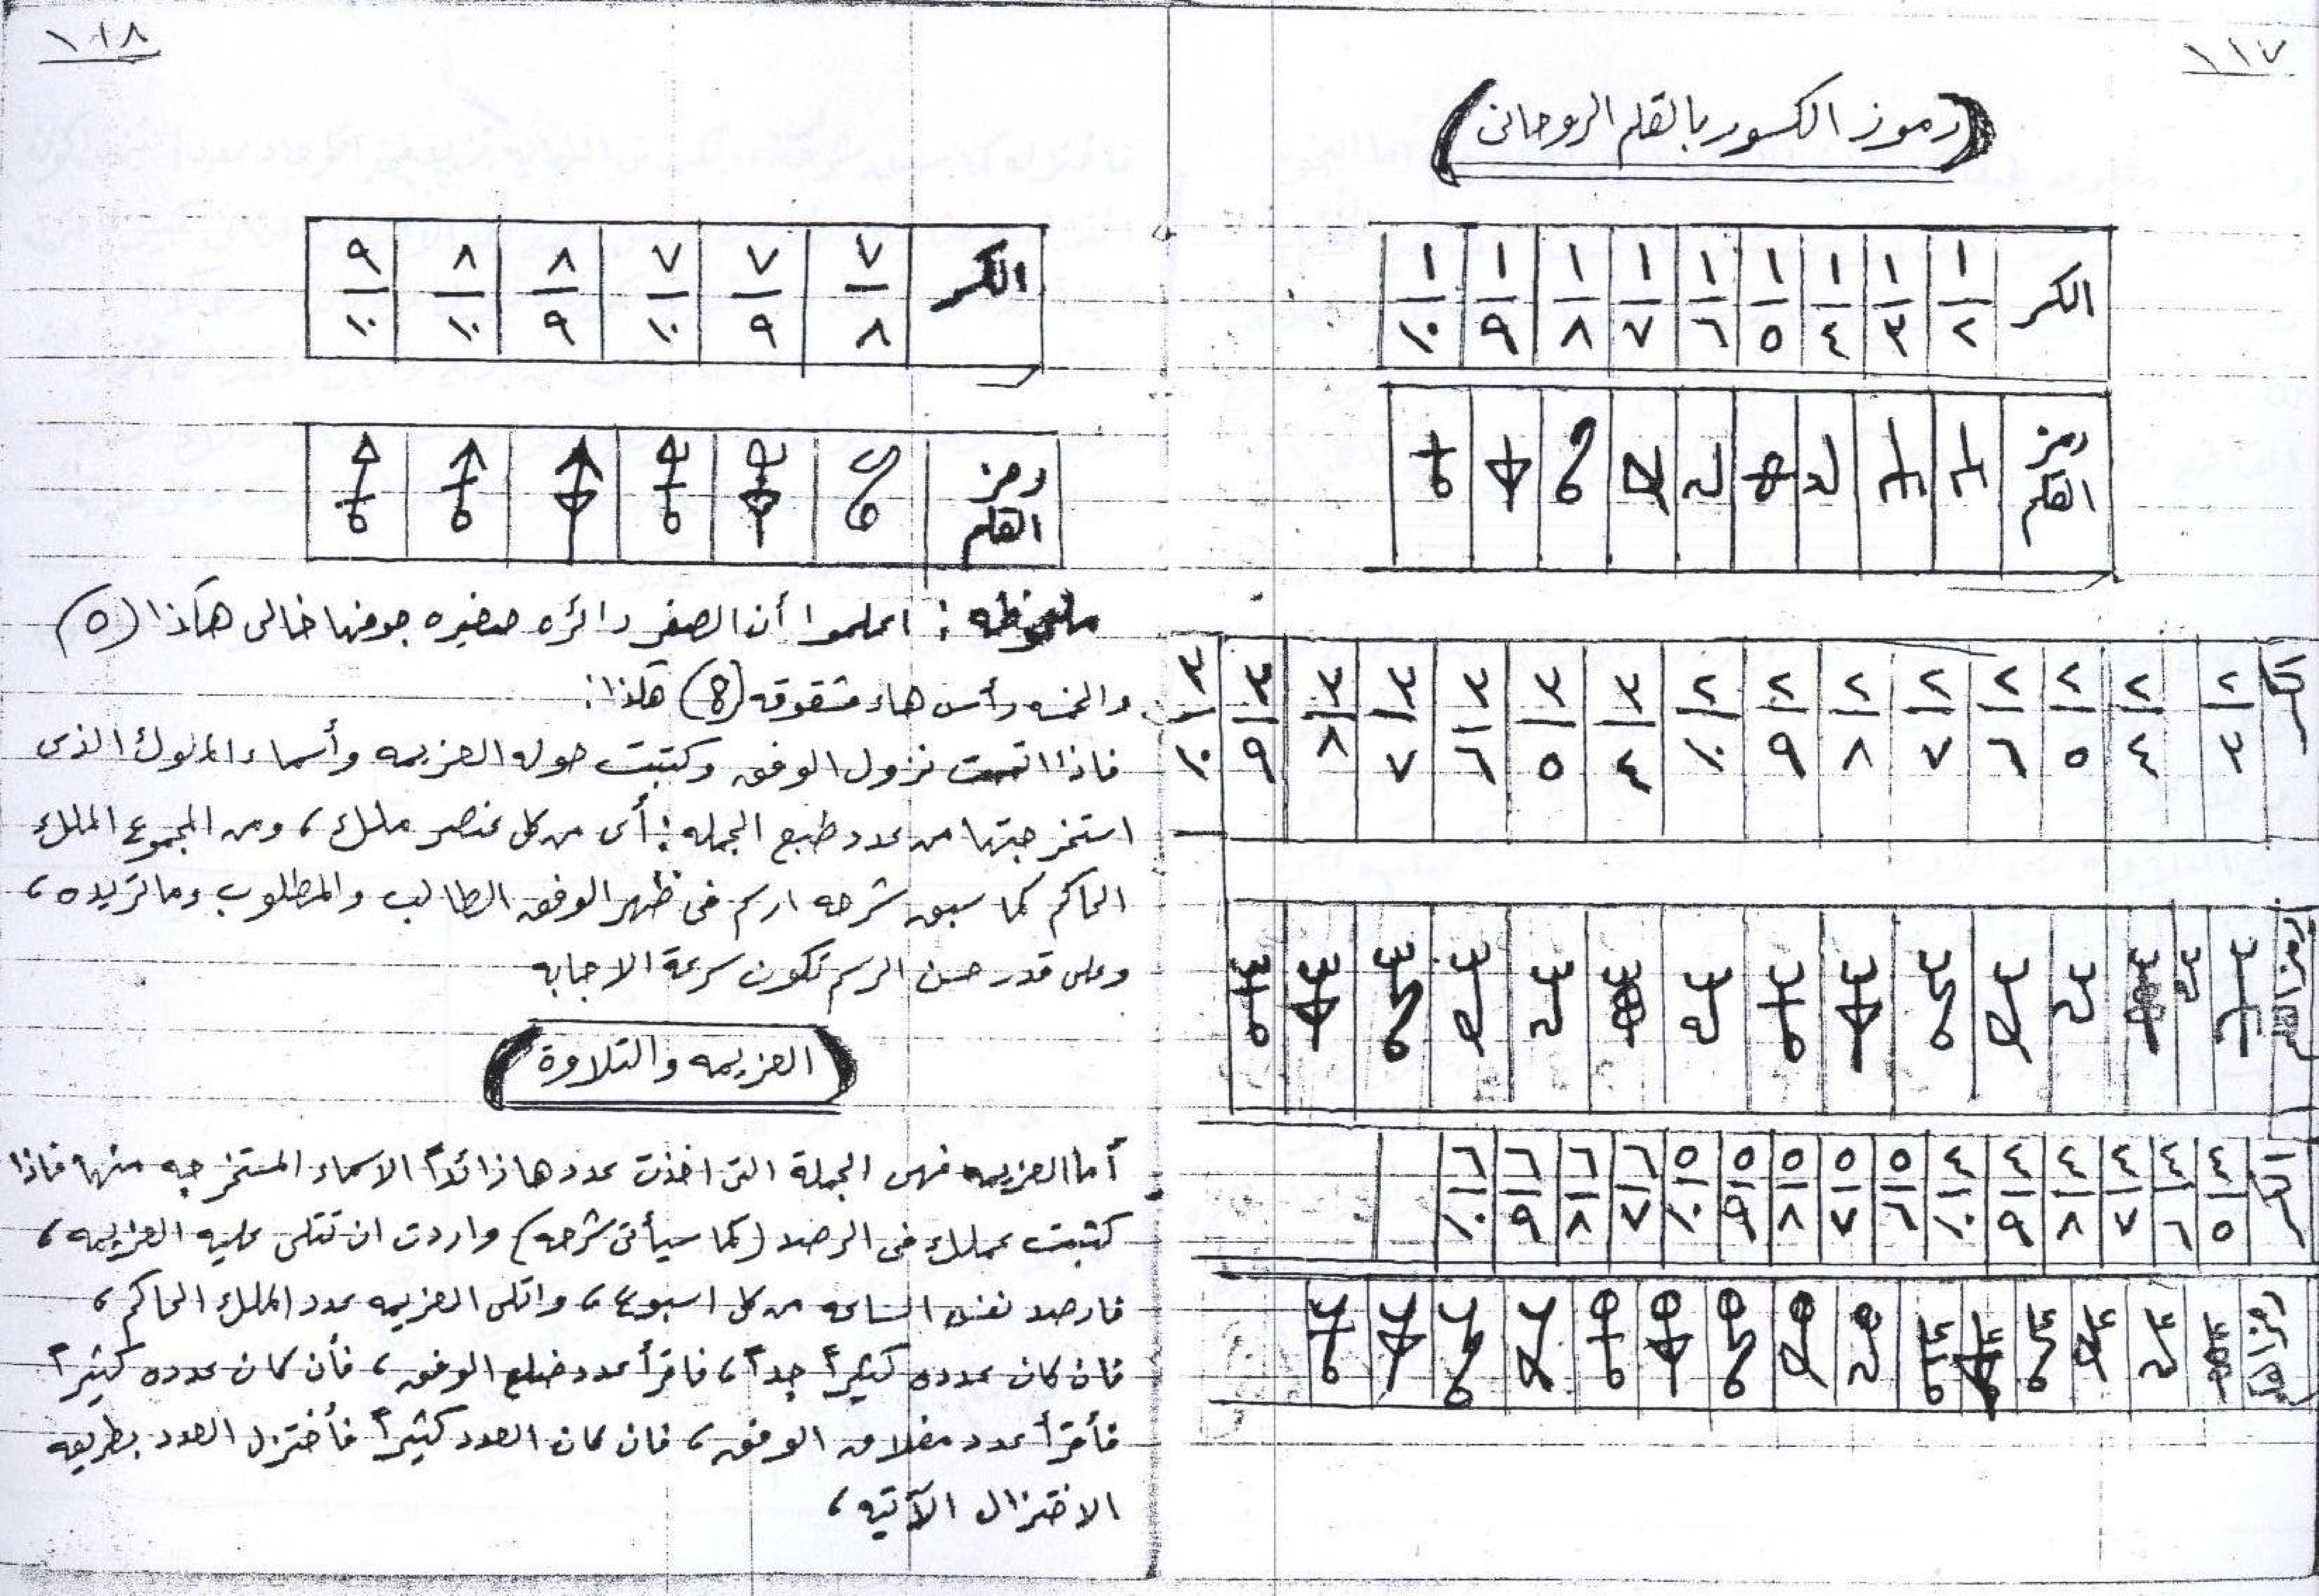 ١١٧
(رموز الكسور بالقلم الروحانى)
الكسر ١/٢ ١/٣ ١/٤ ١/٥ ١/٦ ١/٧ ١/٨ ١/٩ ١/١٠
رمز
القلم
الكسر ٢/٣ ٢/٤ ٢/٥ ٢/٦ ٢/٧ ٢/٨ ٢/٩ ٢/١٠ ٣/٤ ٣/٥ ٣/٦ ٣/٧ ٣/٨ ٣/٩ ٣/١٠
رمز القلم
الكسر ٤/٥ ٤/٦ ٤/٧ ٤/٨ ٤/٩ ٤/١٠ ٥/٦ ٥/٧ ٥/٨ ٥/٩ ٥/١٠ ٦/٧ ٦/٨ ٦/٩ ٦/١٠
رمز القلم
١١٨
الكسر ٧/٨ ٧/٩ ٧/١٠ ٨/٩ ٨/١٠ ٩/١٠
رمز
القلم
ملحوظه : اعلموا أن الصفر دائره صغيره جوفها خالى هكذا (o)
والخمسه رأس هاء مشقوقه (8) هكذا :
فاذا اتممت نزول الوفق وكتبت حوله العزيمه وأسماء الملوك الذى
استخرجتها من عدد طبع الجمله : أى من كل عنصر ملك ، ومن المجموع الملك
الحاكم كما سبق شرحه ارسم فى ظهر الوفق الطالب والمطلوب وما تريده ،
وعلى قدر حسن الرسم تكون سرعة الاجابه
(العزيمه والتلاوة)
أما العزيمه فهى الجملة التى اخذت عددها زائداً الاسماء المستخرجه منها فاذا
كتبت عملك فى الرصد (كما سيأتى شرحه) واردت ان تتلى عليه العزيمه ،
فارصد نفس الساعه من كل اسبوع ، واتلى العزيمه عدد الملك الحاكم ،
فان كان عدده كثيراً جداً ، فاقرأ عدد ضلع الوفق ، فأن كان عدده كثيراً
فأقرأ عدد مغلاق الوفق ، فان كان العدد كثيراً فأختزل العدد بطريقه
الاختزال الآتيه ،